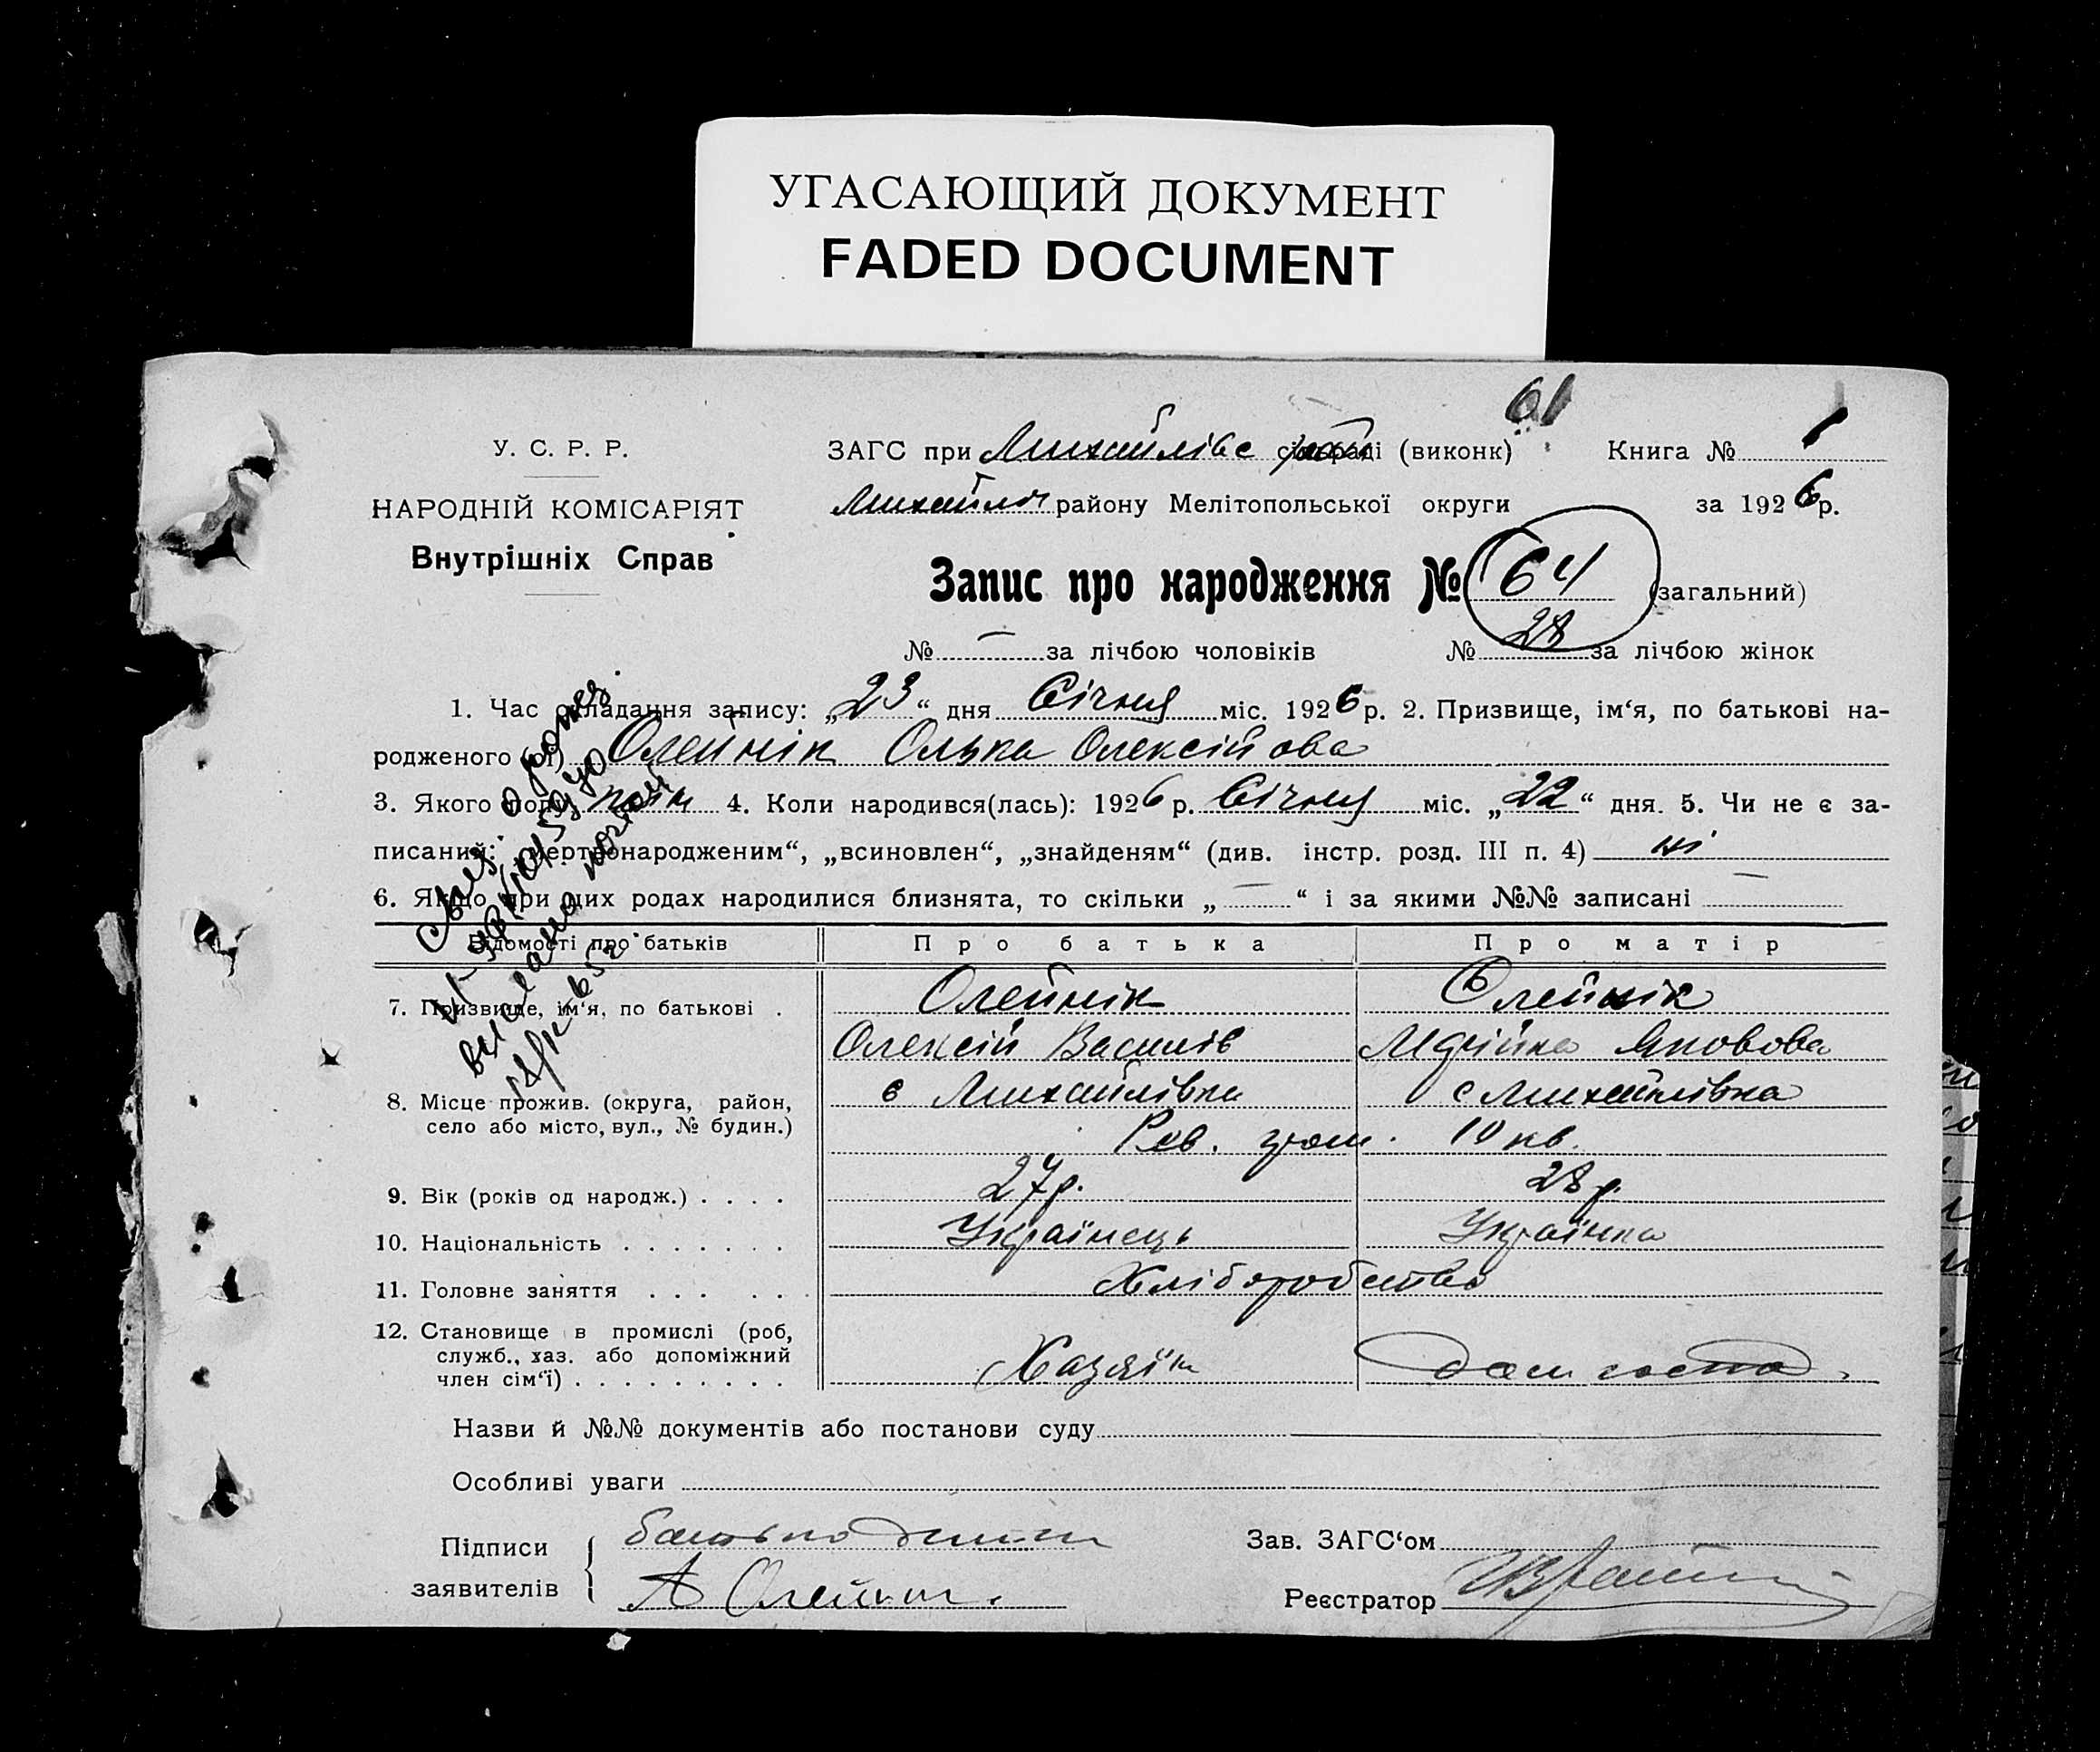 УГАСАЮЩИЙ ДОКУМЕНТ
FADED DOCUMENT
61
У. С. Р. Р.
НАРОДНІЙ КОМІСАРІЯТ
Внутрішніх Справ
ЗАГС при Михайлівс сільраді (виконк)
Книга № 1
Михайл району Мелітопольської округи
за 1926 р.
Запис про народження № 64 (загальний)
№ — за лічбою чоловіків № 28 за лічбою жінок
1. Час складання запису: „23“ дня Січня міс. 1926 р. 2. Призвище, ім‘я, по батькові на-
родженого (ої) Олейнік Олька Олексійова
3. Якого полу 4. Коли народився(лась): 1926 р. Січня міс. „22“ дня. 5. Чи не є за-
писаний: „мертвонародженим“, „всиновлен“, „знайденям“ (див. інстр. розд. III п. 4) ні
6. Якщо при цих родах народилися близнята, то скільки „—“ і за якими №№ записані —
Відомості про батьків
Про батька
Про матір
7. Призвище, ім‘я, по батькові .
Олейнік
Олейнік
Олексій Василів
Яковова
8. Місце прожив. (округа, район,
село або місто, вул., № будин.)
с Михайлівка
с Михайлівка
Рев. гром. 10 кв.
9. Вік (років од народж.) . . . .
27 р.
28 р.
10. Національність . . . . . . .
Українець
Українка
11. Головне заняття . . . . . .
Хліборобство
12. Становище в промислі (роб,
служб., хаз. або допоміжний
член сім‘ї) . . . . . . . . .
Хазяїн
Назви й №№ документів або постанови суду
Особливі уваги
Підписи
заявителів
батько
А Олейник.
Зав. ЗАГС‘ом
Реєстратор